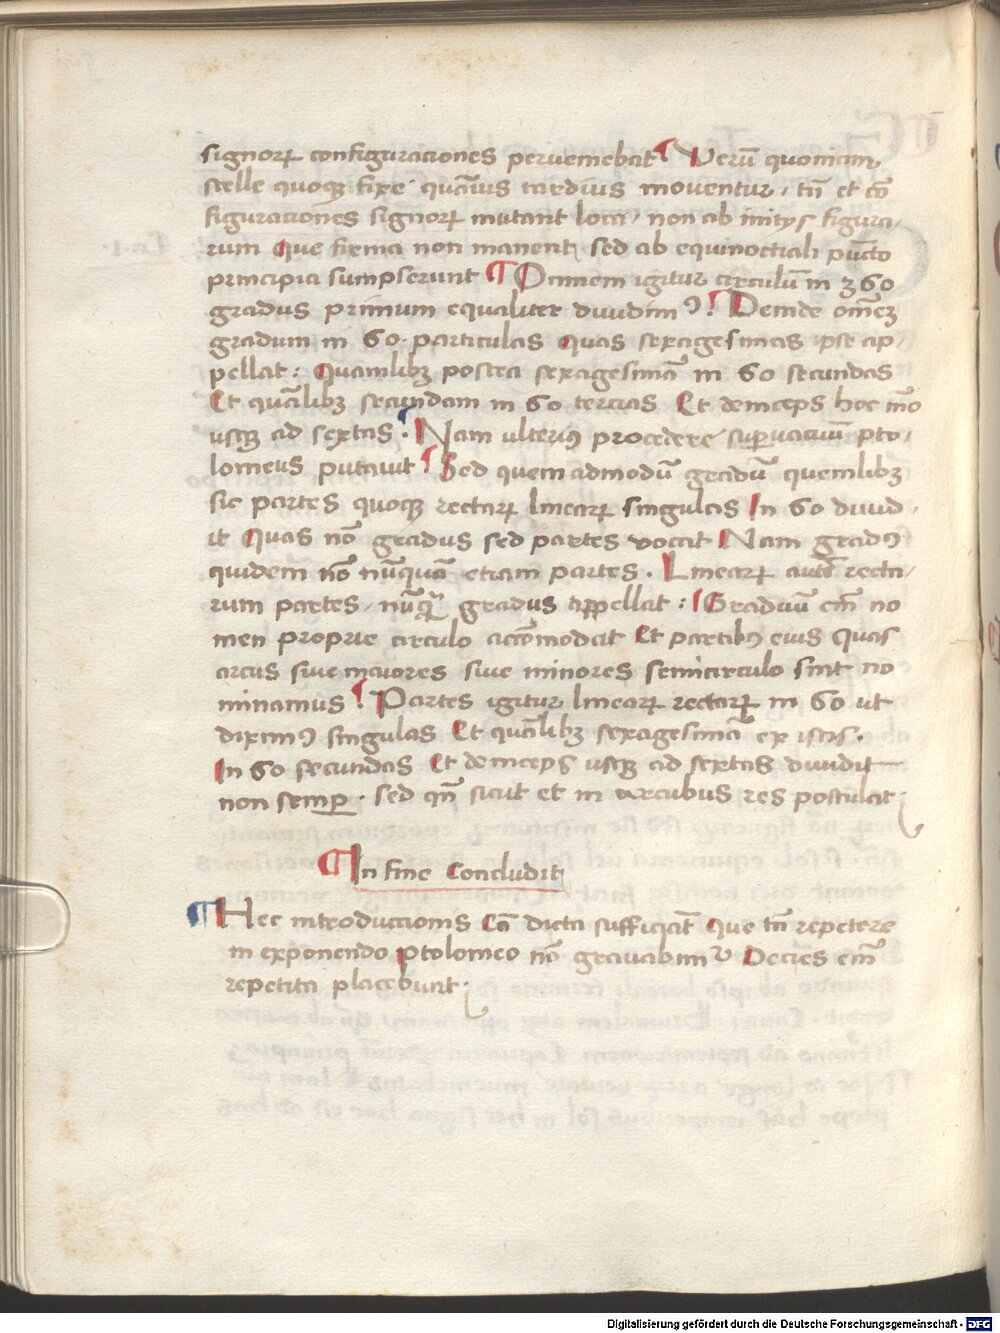 signoꝝ configuraciones perueniebat ¶ Verū quoniam
stelle quoqꝫ fixe quāuis tardius moventur / tn̄ et cō
figuraciones signoꝝ mutant loca / non ab initÿs figura/
rum Que firma non manent sed ab equinoctiali pūcto
principia sumpserunt ¶ Omnem igitur circulū in 360
gradus primum equaliter diuidimꝰ ¶ Deinde om̄eꝫ
gradum in 60 · particulas quas sexagesimas ipse ap/
pellat : Quamlibꝫ postea sexagesimā in 60 secundas
Et quālibꝫ secundam in 60 tercias Et deinceps hoc mō
usqꝫ ad sextas · Nam ulteriꝰ procedere suꝑuacuū pto/
lomeus putauit ¶ Sed quem admodū gradū quemlibꝫ
sic partes quoqꝫ rectaꝝ lineaꝝ singulas In 60 diuid/
it Quas nō gradus sed partes vocat Nam gradꝰ
quidem nō nūquā etiam partes · Lineaꝝ autē recta/
rum partes / nūqꝫ gradus appellat : Graduū em̄ no
men proprie circulo accōmodat Et partibꝰ eius quas
arcus siue maiores siue minores semicirculo sint no
minamus ¶ Partes igitur lineaꝝ rectaꝝ in 60 ut
diximꝰ singulas Et quālibꝫ sexagesimā ex istis ·
In 60 secundas Et deinceps usqꝫ ad sextas diuidit
non semꝑ · sed qn̄ sicut et in arcubus res postulat
¶ In fine Concludit
¶ Hec introduccionis Cā dicta sufficiāt Que tn̄ repetere
in exponendo ptolomeo nō grauabimur Decies em̄
repetita placebunt ·
Digitalisierung gefördert durch die Deutsche Forschungsgemeinschaft - DFG